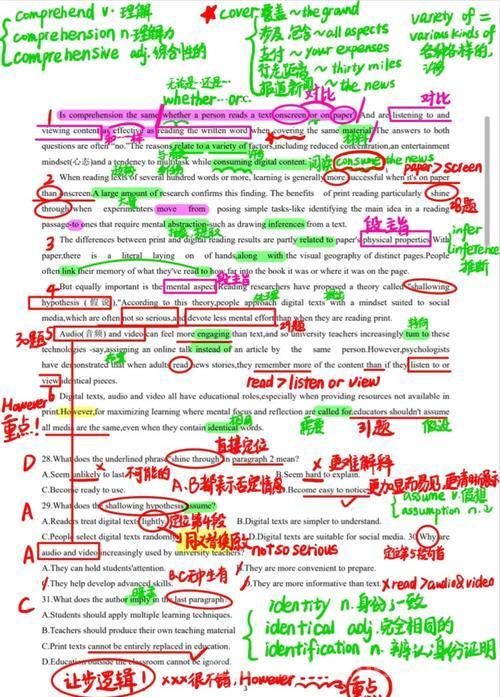 comprehend v. 理解
comprehension n. 理解力
comprehensive adj. 综合性的
★ cover 覆盖 ~ the ground
涉及, 包含 ~ all aspects
支付 ~ your expenses
行走距离 ~ thirty miles
报道新闻 ~ the news
variety of =
various kinds of
各种各样的
无论是…还是…
whether…or…
对比
对比
1 Is comprehension the same whether a person reads a text onscreen or on paper? And are listening to and
viewing content as effective as reading the written word when covering the same material? The answers to both
questions are often "no." The reasons relate to a variety of factors, including reduced concentration, an entertainment
mindset(心态)and a tendency to multitask while consuming digital content.
consume the news
paper > screen
2 When reading texts of several hundred words or more, learning is generally more successful when it's on paper
than onscreen. A large amount of research confirms this finding. The benefits of print reading particularly shine
through when experimenters move from posing simple tasks-like identifying the main idea in a reading
passage-to ones that require mental abstraction-such as drawing inferences from a text.
28题
infer
inference
推断
段主旨
3 The differences between print and digital reading results are partly related to paper's physical properties. With
paper, there is a literal laying on of hands, along with the visual geography of distinct pages. People
often link their memory of what they've read to how far into the book it was or where it was on the page.
段主旨
4 But equally important is the mental aspect. Reading researchers have proposed a theory called "shallowing
hypothesis (假说)," According to this theory, people approach digital texts with a mindset suited to social
media, which are often not so serious, and devote less mental effort than when they are reading print.
29题
30题
转向
5 Audio(音频) and video can feel more engaging than text, and so university teachers increasingly turn to these
technologies -say, assigning an online talk instead of an article by the same person. However, psychologists
have demonstrated that when adults read news stories, they remember more of the content than if they listen to
or view identical pieces.
read > listen or view
However
重点!
6 Digital texts, audio and video all have educational roles, especially when providing resources not available in
print. However, for maximizing learning where mental focus and reflection are called for, educators shouldn't assume
all media are the same, even when they contain identical words.
相同
需要
31题
假设
直接定位
D 28. What does the underlined phrase "shine through" in paragraph 2 mean?
A. Seem unlikely to last. 不可能的
B. Seem hard to explain. × 更难解释
C. Become ready to use.
D. Become easy to notice.
A、B都表示否定情感
A 29. What does the shallowing hypothesis assume?
assume v. 假想
assumption n.
A. Readers treat digital texts lightly. 定位第4段
B. Digital texts are simpler to understand.
C. People select digital texts randomly.
D. Digital texts are suitable for social media. 30. Why are
同义替换
not so serious
定位第5段首句
A audio and video increasingly used by university teachers?
A. They can hold students' attention.
B. They are more convenient to prepare.
B、C无中生有
C. They help develop advanced skills.
D. They are more informative than text. × read > audio & video
暗示
C 31. What does the author imply in the last paragraph?
A. Students should apply multiple learning techniques.
B. Teachers should produce their own teaching material
C. Print texts cannot be entirely replaced in education.
D. Education outside the classroom cannot be ignored.
identity n. 身份, 一致
identical adj. 完全相同的
identification n. 辨认, 身份证明
让步逻辑! xxx很不错, However ~~~ 重点
3